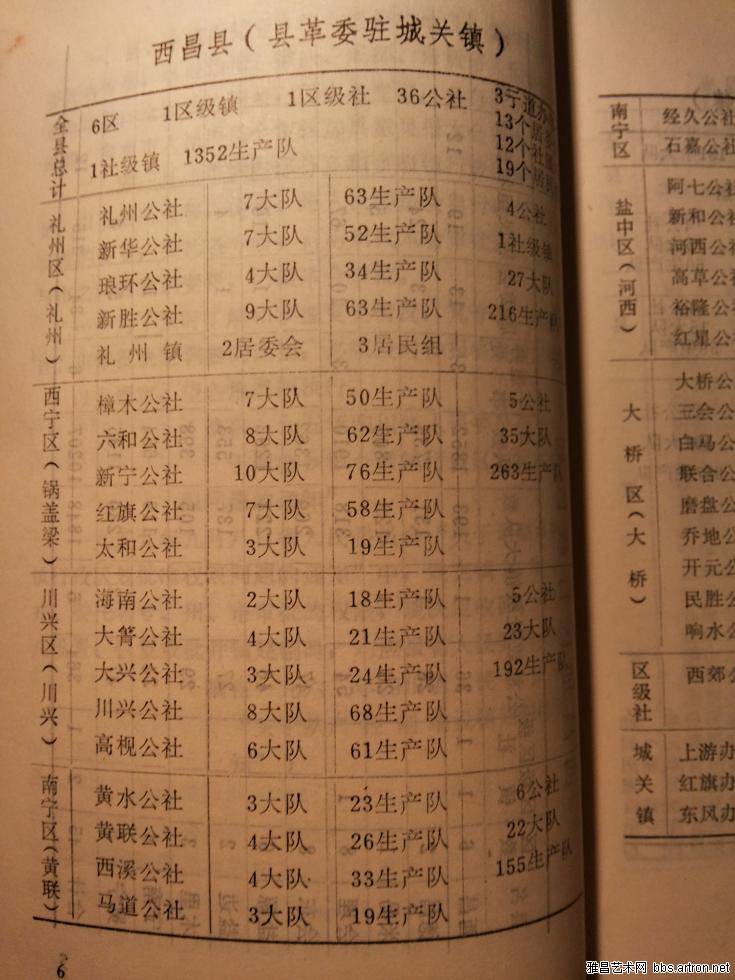 西昌县(县革委驻城关镇)
全县总计 6区 1区级镇 1区级社 36公社 3宁道办
13个居委
1社级镇 1352生产队 12个社
19个居民
礼州区(礼州) 礼州公社 7大队 63生产队 4公社
新华公社 7大队 52生产队 1社级镇
琅环公社 4大队 34生产队 27大队
新胜公社 9大队 63生产队 216生产队
礼州镇 2居委会 3居民组
西宁区(锅盖梁) 樟木公社 7大队 50生产队 5公社
六和公社 8大队 62生产队 35大队
新宁公社 10大队 76生产队 263生产队
红旗公社 7大队 58生产队
太和公社 3大队 19生产队
川兴区(川兴) 海南公社 2大队 18生产队 5公社
大箐公社 4大队 21生产队 23大队
大兴公社 3大队 24生产队 192生产队
川兴公社 8大队 68生产队
高枧公社 6大队 61生产队
南宁区(黄联) 黄水公社 3大队 23生产队 6公社
黄联公社 4大队 26生产队 22大队
西溪公社 4大队 33生产队 155生产队
马道公社 3大队 19生产队
6
南宁区 经久公社
石嘉公社
盐中区(河西) 阿七公社
新和公社
河西公社
高草公社
裕隆公社
红星公社
大桥区(大桥) 大桥公
三会公
白马公
联合公
磨盘公
乔地公
开元公
民胜公
响水公
区级社 西郊公
城关镇 上游办
红旗办
东风办
雅昌艺术网 bbs.artron.net